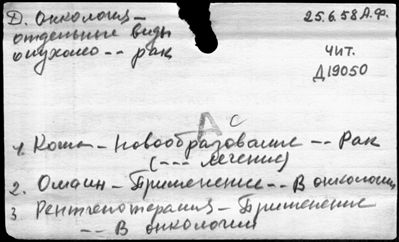 Д. Онкология –
отдельные виды
опухолей -- рак
25.6.58 А.Ф.
ЧИТ.
Д19050
А С
1. Кожа – Новообразование -- Рак
(--- лечение)
2. Омаин – Применение -- В онкологии
3. Рентгенотерапия – Применение
-- В онкологии